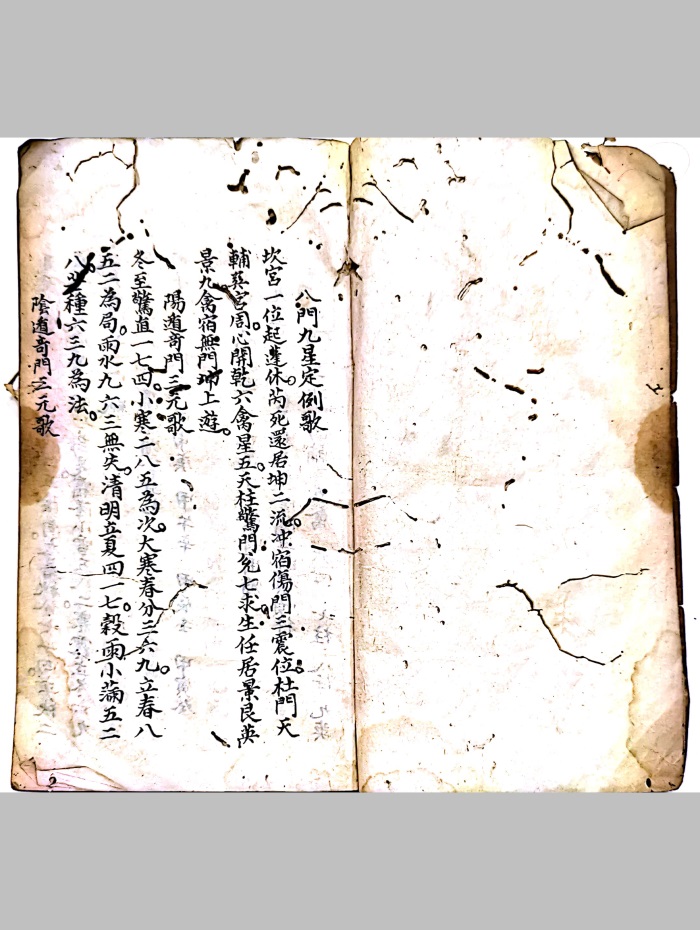 八門九星定例歌
坎宮一位起蓬休芮死還居坤二流冲宿傷門三震位杜門天
輔巽宮周心開乾六禽星五天柱驚門兌七求生任居景艮英
景九禽宿無門坤上遊
陽遁奇門三元歌
冬至驚直一七四小寒二八五為次大寒春分三六九立春八
五二為局雨水九六三無失清明立夏四一七穀雨小滿五二
八 種六三九為法
陰遁奇門三元歌